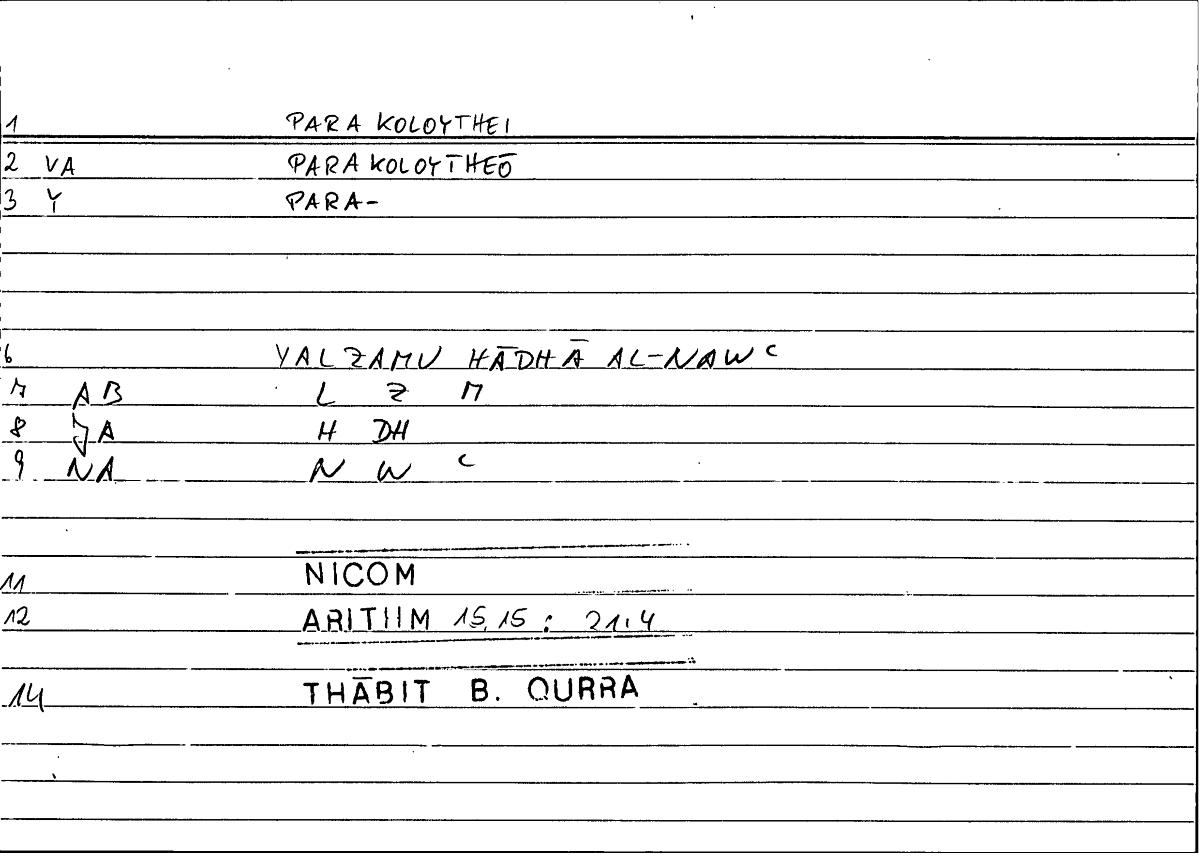 1 PARAKOLOYTHEI
2 VA PARAKOLOYTHEŌ
3 Y PARA-
6 YALZAMU HĀDHĀ AL-NAWC
7 AB L Z M
8 JA H DH
9 NA N W C
11 NICOM
12 ARITHM 15,15 : 21,4
14 THĀBIT B. QURRA